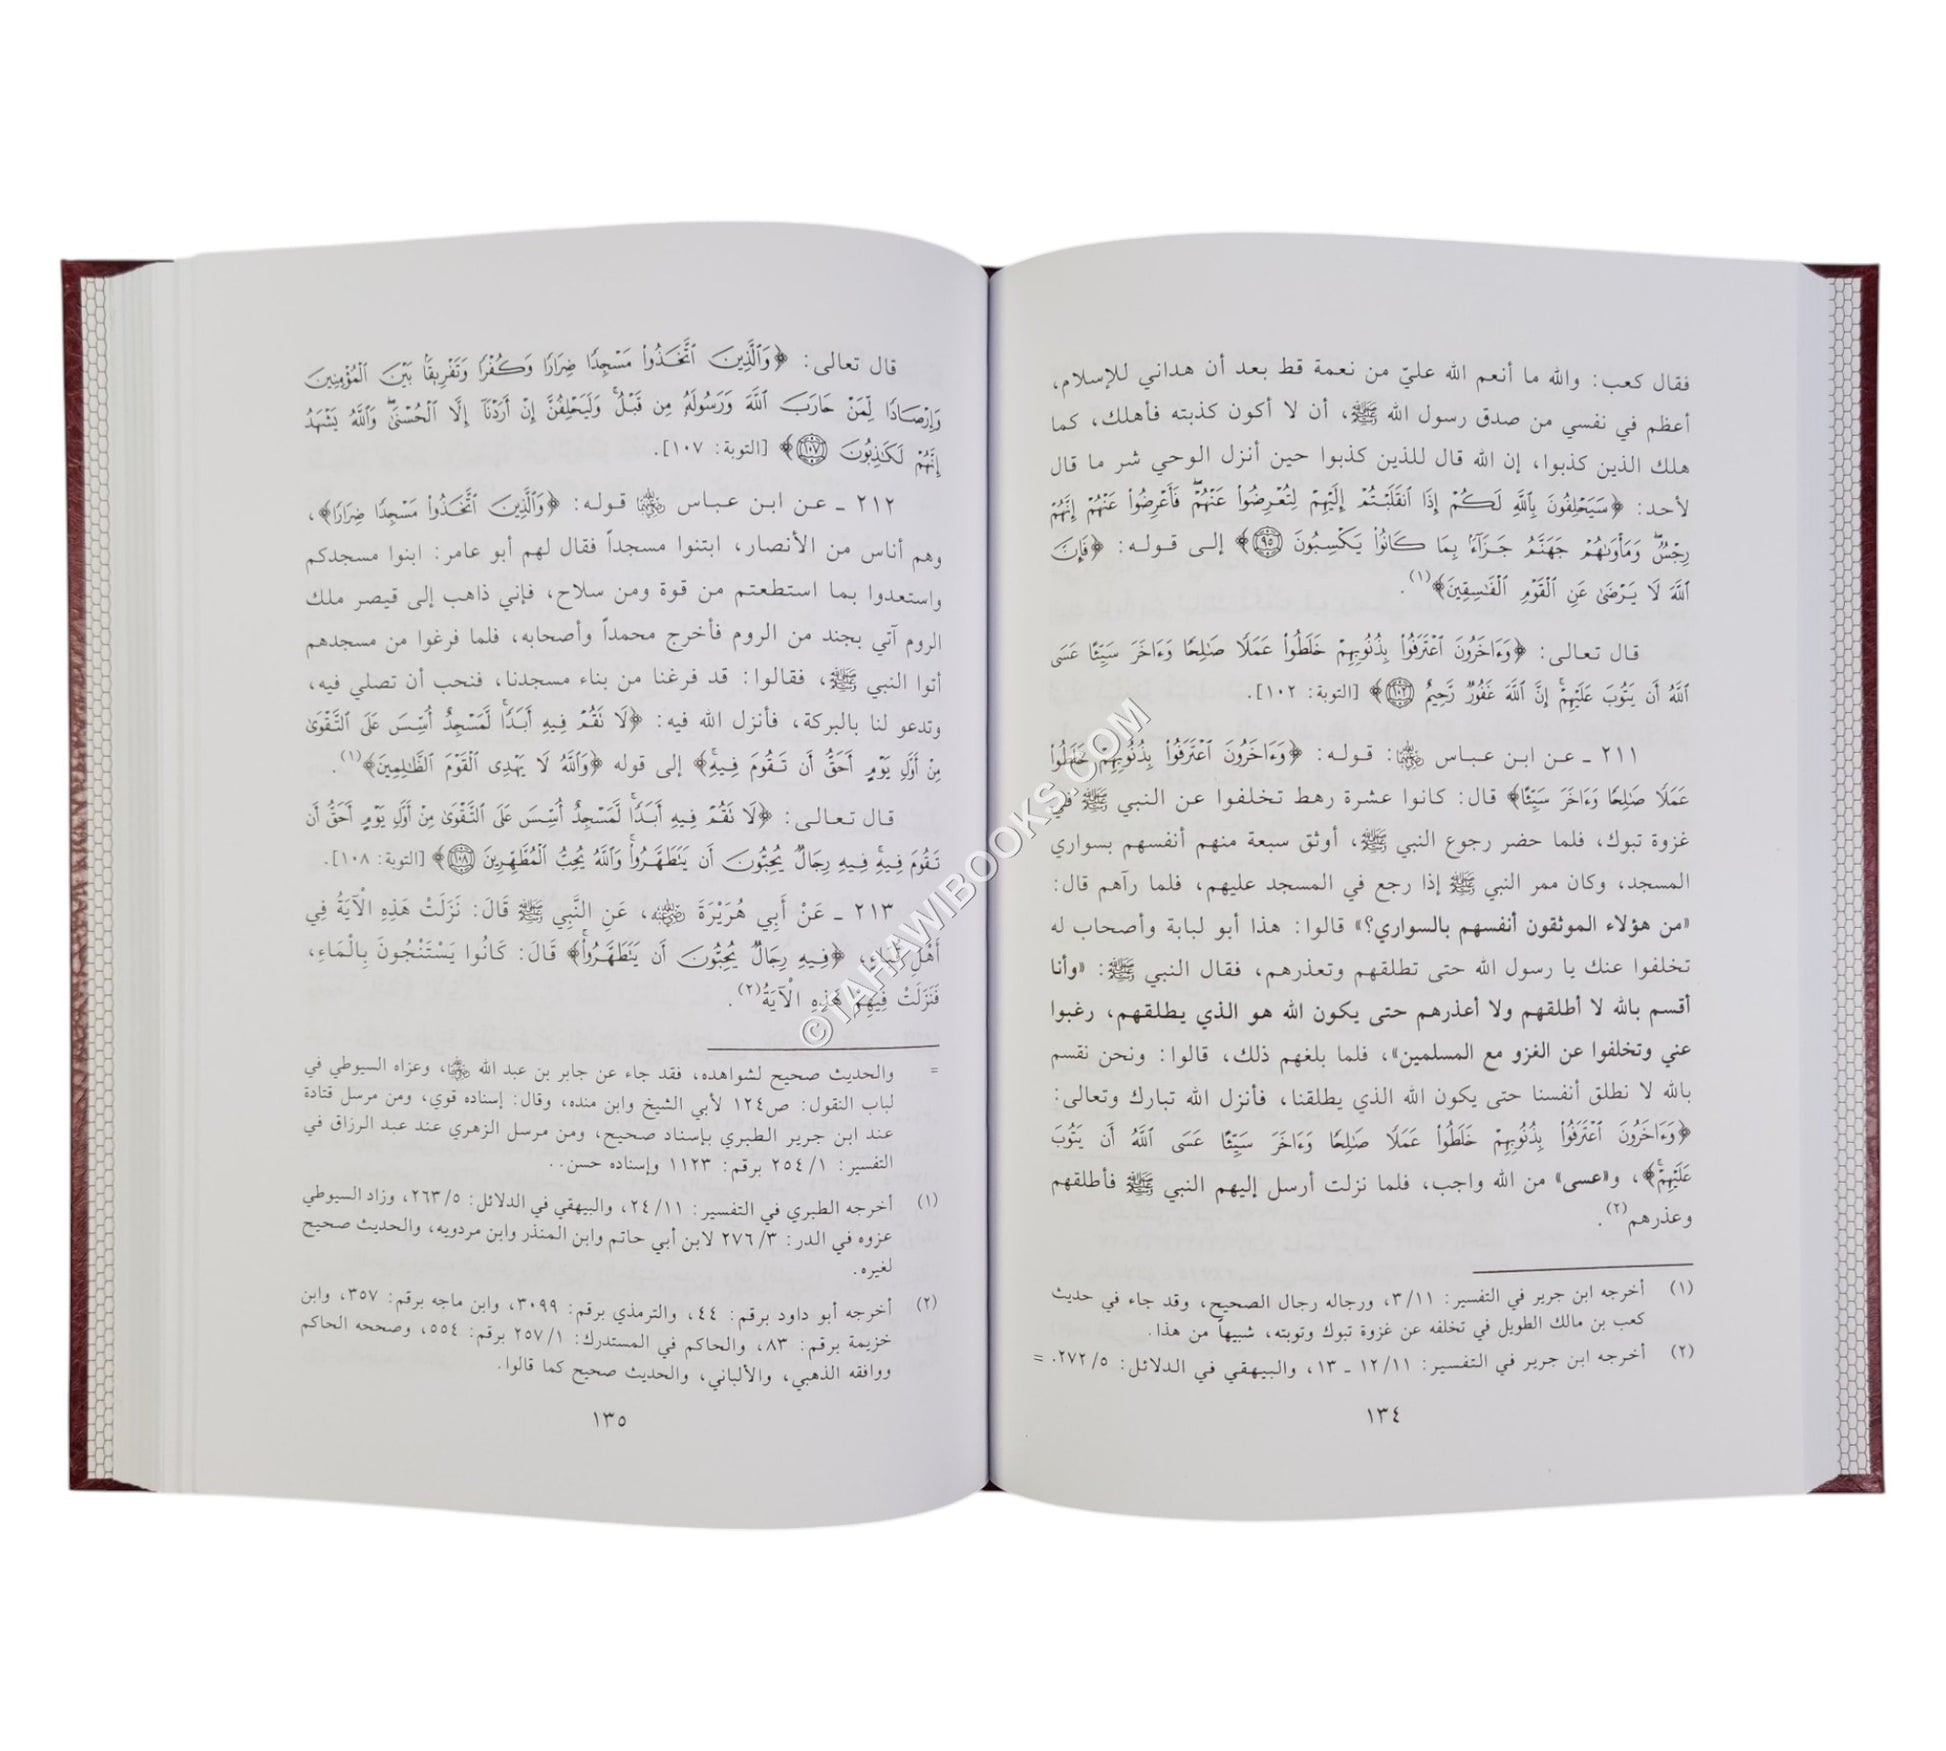 فقال كعب: والله ما أنعم الله عليّ من نعمة قط بعد أن هداني للإسلام،
أعظم في نفسي من صدق رسول الله ﷺ، أن لا أكون كذبته فأهلك، كما
هلك الذين كذبوا، إن الله قال للذين كذبوا حين أنزل الوحي شر ما قال
لأحد: ﴿سَيَحْلِفُونَ بِٱللَّهِ لَكُمْ إِذَا ٱنقَلَبْتُمْ إِلَيْهِمْ لِتُعْرِضُوا۟ عَنْهُمْ ۖ فَأَعْرِضُوا۟ عَنْهُمْ إِنَّهُمْ
رِجْسٌ ۖ وَمَأْوَىٰهُمْ جَهَنَّمُ جَزَآءً بِمَا كَانُوا۟ يَكْسِبُونَ ٩٥﴾ إلى قوله: ﴿فَإِنَّ
ٱللَّهَ لَا يَرْضَىٰ عَنِ ٱلْقَوْمِ ٱلْفَٰسِقِينَ﴾(١).
قال تعالى: ﴿وَءَاخَرُونَ ٱعْتَرَفُوا۟ بِذُنُوبِهِمْ خَلَطُوا۟ عَمَلًا صَٰلِحًا وَءَاخَرَ سَيِّئًا عَسَى
ٱللَّهُ أَن يَتُوبَ عَلَيْهِمْ ۚ إِنَّ ٱللَّهَ غَفُورٌ رَّحِيمٌ ١٠٢﴾ [التوبة: ١٠٢].
٢١١ ـ عن ابن عباس رضي الله عنهما: قوله: ﴿وَءَاخَرُونَ ٱعْتَرَفُوا۟ بِذُنُوبِهِمْ خَلَطُوا۟
عَمَلًا صَٰلِحًا وَءَاخَرَ سَيِّئًا﴾ قال: كانوا عشرة رهط تخلفوا عن النبي ﷺ في
غزوة تبوك، فلما حضر رجوع النبي ﷺ، أوثق سبعة منهم أنفسهم بسواري
المسجد، وكان ممر النبي ﷺ إذا رجع في المسجد عليهم، فلما رآهم قال:
«من هؤلاء الموثقون أنفسهم بالسواري؟» قالوا: هذا أبو لبابة وأصحاب له
تخلفوا عنك يا رسول الله حتى تطلقهم وتعذرهم، فقال النبي ﷺ: «وأنا
أقسم بالله لا أطلقهم ولا أعذرهم حتى يكون الله هو الذي يطلقهم، رغبوا
عني وتخلفوا عن الغزو مع المسلمين»، فلما بلغهم ذلك، قالوا: ونحن نقسم
بالله لا نطلق أنفسنا حتى يكون الله الذي يطلقنا، فأنزل الله تبارك وتعالى:
﴿وَءَاخَرُونَ ٱعْتَرَفُوا۟ بِذُنُوبِهِمْ خَلَطُوا۟ عَمَلًا صَٰلِحًا وَءَاخَرَ سَيِّئًا عَسَى ٱللَّهُ أَن يَتُوبَ
عَلَيْهِمْ ۚ﴾، و«عسى» من الله واجب، فلما نزلت أرسل إليهم النبي ﷺ فأطلقهم
وعذرهم(٢).
(١) أخرجه ابن جرير في التفسير: ٣/١١، ورجاله رجال الصحيح، وقد جاء في حديث
كعب بن مالك الطويل في تخلفه عن غزوة تبوك وتوبته، شبيهاً من هذا.
(٢) أخرجه ابن جرير في التفسير: ١٢/١١ ـ ١٣، والبيهقي في الدلائل: ٢٧٢/٥. =
١٣٤
قال تعالى: ﴿وَٱلَّذِينَ ٱتَّخَذُوا۟ مَسْجِدًا ضِرَارًا وَكُفْرًا وَتَفْرِيقًۢا بَيْنَ ٱلْمُؤْمِنِينَ
وَإِرْصَادًا لِّمَنْ حَارَبَ ٱللَّهَ وَرَسُولَهُۥ مِن قَبْلُ ۚ وَلَيَحْلِفُنَّ إِنْ أَرَدْنَآ إِلَّا ٱلْحُسْنَىٰ ۖ وَٱللَّهُ يَشْهَدُ
إِنَّهُمْ لَكَٰذِبُونَ ١٠٧﴾ [التوبة: ١٠٧].
٢١٢ ـ عن ابن عباس رضي الله عنهما قوله: ﴿وَٱلَّذِينَ ٱتَّخَذُوا۟ مَسْجِدًا ضِرَارًا﴾،
وهم أناس من الأنصار، ابتنوا مسجداً فقال لهم أبو عامر: ابنوا مسجدكم
واستعدوا بما استطعتم من قوة ومن سلاح، فإني ذاهب إلى قيصر ملك
الروم آتي بجند من الروم فأخرج محمداً وأصحابه، فلما فرغوا من مسجدهم
أتوا النبي ﷺ، فقالوا: قد فرغنا من بناء مسجدنا، فنحب أن تصلي فيه،
وتدعو لنا بالبركة، فأنزل الله فيه: ﴿لَا تَقُمْ فِيهِ أَبَدًا ۚ لَّمَسْجِدٌ أُسِّسَ عَلَى ٱلتَّقْوَىٰ
مِنْ أَوَّلِ يَوْمٍ أَحَقُّ أَن تَقُومَ فِيهِ ۚ﴾ إلى قوله ﴿وَٱللَّهُ لَا يَهْدِى ٱلْقَوْمَ ٱلظَّٰلِمِينَ﴾(١).
قال تعالى: ﴿لَا تَقُمْ فِيهِ أَبَدًا ۚ لَّمَسْجِدٌ أُسِّسَ عَلَى ٱلتَّقْوَىٰ مِنْ أَوَّلِ يَوْمٍ أَحَقُّ أَن
تَقُومَ فِيهِ ۚ فِيهِ رِجَالٌ يُحِبُّونَ أَن يَتَطَهَّرُوا۟ ۚ وَٱللَّهُ يُحِبُّ ٱلْمُطَّهِّرِينَ ١٠٨﴾ [التوبة: ١٠٨].
٢١٣ ـ عَنْ أَبِي هُرَيْرَةَ رضي الله عنه، عَنِ النَّبِي ﷺ قَالَ: نَزَلَتْ هَذِهِ الْآيَةُ فِي
أَهْلِ قُبَاءٍ، ﴿فِيهِ رِجَالٌ يُحِبُّونَ أَن يَتَطَهَّرُوا۟ ۚ﴾ قَالَ: كَانُوا يَسْتَنْجُونَ بِالْمَاءِ،
فَنَزَلَتْ فِيهِمْ هَذِهِ الْآيَةُ(٢).
= والحديث صحيح لشواهده، فقد جاء عن جابر بن عبد الله رضي الله عنهما، وعزاه السيوطي في
لباب النقول: ص١٢٤ لأبي الشيخ وابن منده، وقال: إسناده قوي، ومن مرسل قتادة
عند ابن جرير الطبري بإسناد صحيح، ومن مرسل الزهري عند عبد الرزاق في
التفسير: ٢٥٤/١ برقم: ١١٢٣ وإسناده حسن..
(١) أخرجه الطبري في التفسير: ٢٤/١١، والبيهقي في الدلائل: ٢٦٣/٥، وزاد السيوطي
عزوه في الدر: ٢٧٦/٣ لابن أبي حاتم وابن المنذر وابن مردويه، والحديث صحيح
لغيره.
(٢) أخرجه أبو داود برقم: ٤٤، والترمذي برقم: ٣٠٩٩، وابن ماجه برقم: ٣٥٧، وابن
خزيمة برقم: ٨٣، والحاكم في المستدرك: ٢٥٧/١ برقم: ٥٥٤، وصححه الحاكم
ووافقه الذهبي، والألباني، والحديث صحيح كما قالوا.
١٣٥
©TAHAWIBOOKS.COM